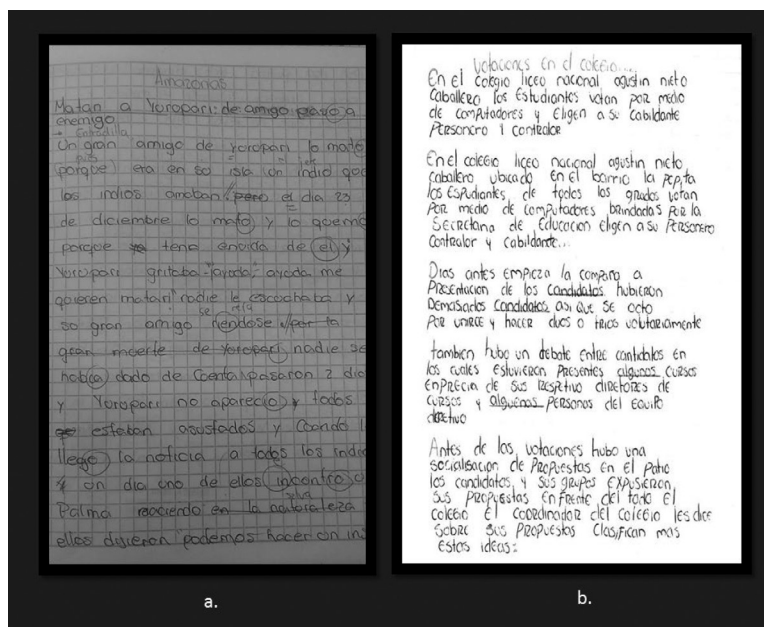 Amazonas
Matan a Yoropari: de amigo paso a
enemigo
→ Entradilla
Un gran amigo de yoropari lo mato
pues
(porque) era en so isla un indio que
los indios amaban (pero el dia 23
de diciembre lo mato y lo quemo
porque tenia envidia de el y
Yoropari gritaba "ayuda, ayuda me
quieren matar" nadie le escuchaba y
se reia
so gran amigo riendose por la
gran muerte de Yoropari nadie se
habia dado de cuenta pasaron 2 dia
y Yoropari no aparecio y todos
estaban asustados y cuando l
llego la noticia a todos los indi
y un dia uno de ellos incontro
selva
Palma naciendo en la naturaleza
ellos dijieron podemos hacer un in
a.
Votaciones En el colegio...
En el colegio liceo nacional agustin nieto
Caballero los Estudiantes votan por medio
de computadores y Eligen a su Cabildante
Personero 1 contralor
En el colegio liceo nacional agustin nieto
caballero ubicado en el barrio la Pepita
los Espudiantes de todos los grados votan
Por medio de computadores brindadas Por la
Secretaria de Educacion eligen a su Personero
Contralor y cabildante...
Dias antes empieza la compana a
Presentacion de los candidatos hubieron
Demasiados Candidatos asi que se octo
Por unirce y hacer duos o trios volutariamente
tambien hubo un debate entre cantidatos en
los cuales estuvieron Presentes algunos cursos
EnPrecia de sus respetivo diretores de
cursos y alguenas personas del equipo
diretivo
Antes de las votaciones hubo una
Socialisacion de Propuestas en el Patio
los candidatos y sus grupos EXPusieron
Sus Propuestas Enfrente del todo El
colegio El Coordinador del Colegio les dice
Sobre sus Propuestas Clasifican mas
Estas ideas:
b.